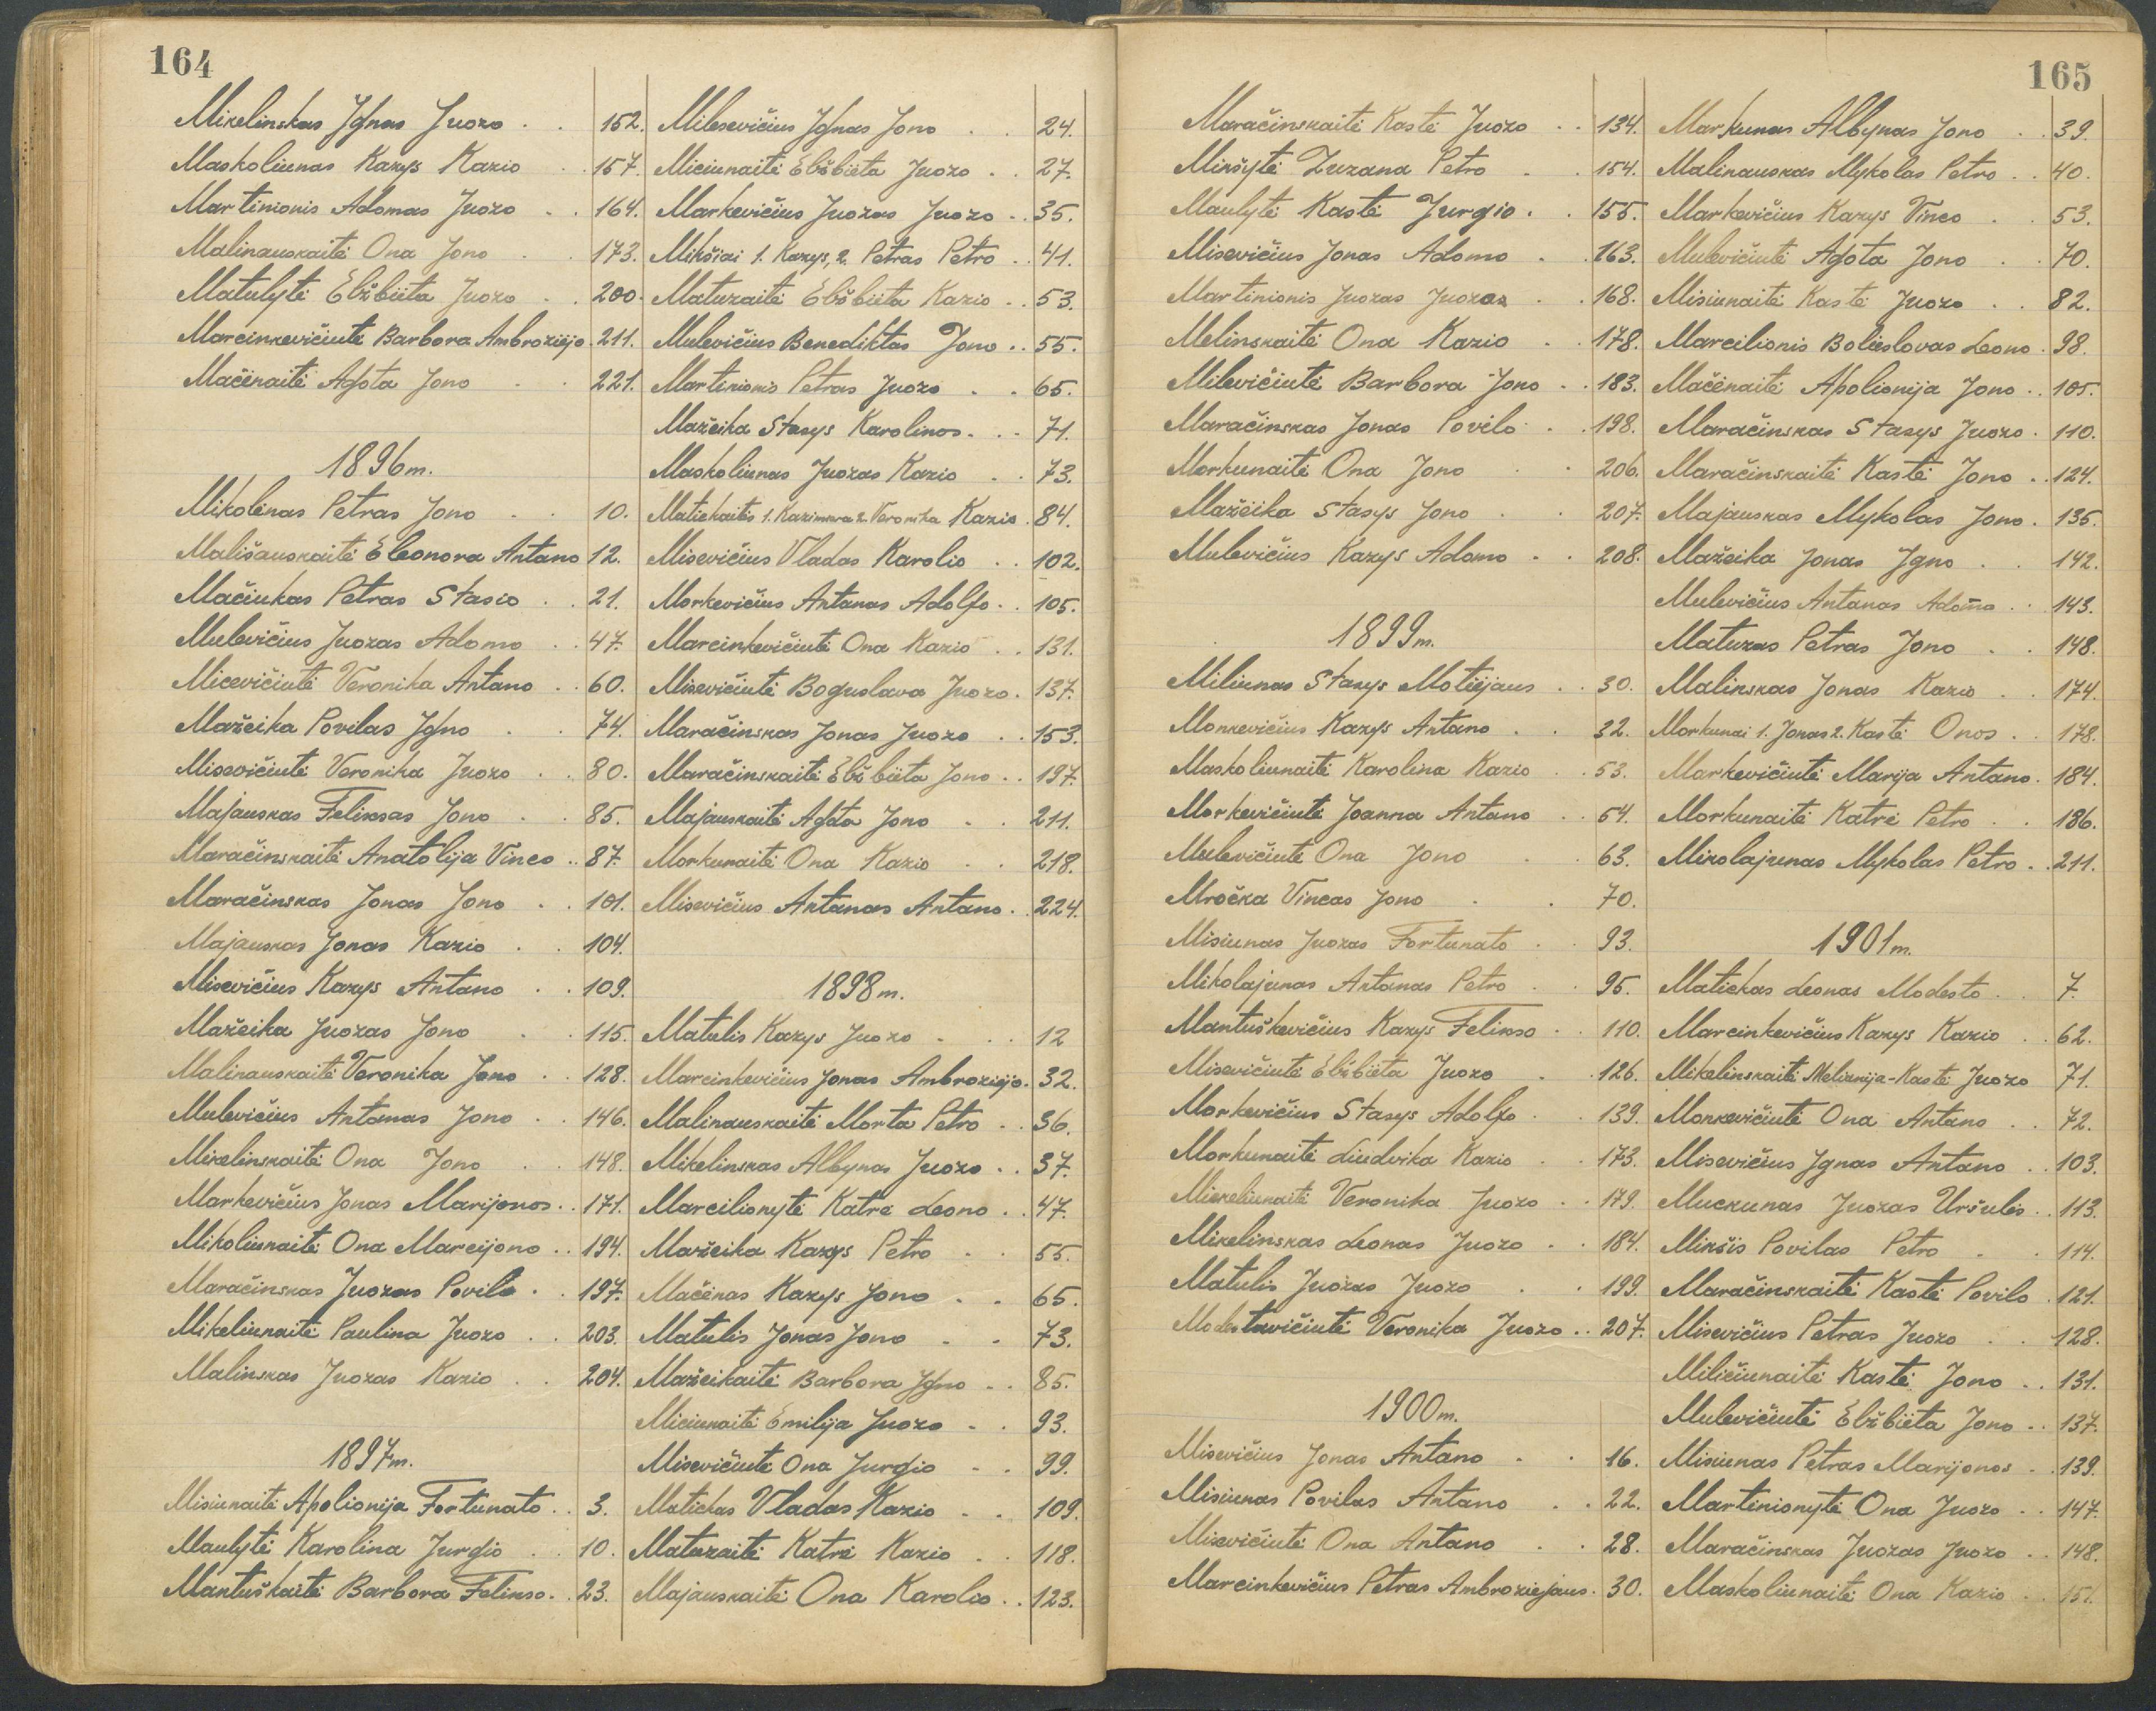 164
Mikelinskas Ignas Juozo . . 152.
Maskoliunas Kazys Kazio . 157.
Martinionis Adomas Juozo . . 164.
Malinauskaitė Ona Jono . . 173.
Matulytė Elžbieta Juozo . . 200.
Marcinkevičiutė Barbora Ambroziejo . 211.
Mačėnaitė Agota Jono . . 221.
1896 m.
Mikolėnas Petras Jono . . 10.
Mališauskaitė Eleonora Antano 12.
Mačiukas Petras Stasio . . 21.
Mulevičius Juozas Adomo . . 47.
Micevičiutė Veronika Antano . . 60.
Mažeika Povilas Igno . . 74.
Misevičiutė Veronika Juozo . . 80.
Majauskas Feliksas Jono . . 85.
Maračinskaitė Anatolija Vinco . . 87.
Maračinskas Jonas Jono . . 101.
Majauskas Jonas Kazio . . 104.
Misevičius Kazys Antano . . 109.
Mažeika Juozas Jono . . 115.
Malinauskaitė Veronika Jono . . 128.
Mulevičius Antanas Jono . . 146.
Mikelinskaitė Ona Jono . . 148.
Markevičius Jonas Marijonos . . 171.
Mikoliunaitė Ona Marcijono . . 194.
Maračinskas Juozas Povilo . . 197.
Mikeliunaitė Paulina Juozo . . 203.
Malinskas Juozas Kazio . . 204.
1897 m.
Misiunaitė Apolionija Fortunato . . 3.
Maulytė Karolina Jurgio . . 10.
Mantuškaitė Barbora Felikso . . 23.
Milesevičius Ignas Jono . . 24.
Miciunaitė Elžbieta Juozo . . 27.
Markevičius Juozas Juozo . . 35.
Mikšiai 1. Kazys, 2. Petras Petro . . 41.
Matuzaitė Elžbieta Kazio . . 53.
Mulevičius Benediktas Jono . . 55.
Martinionis Petras Juozo . . 65.
Mažeika Stasys Karolinos . . . 71.
Maskoliunas Juozas Kazio . . 73.
Matiekaitės 1. Kazimiera 2. Veronika Kazio . 84.
Misevičius Vladas Karolio . . 102.
Morkevičius Antanas Adolfo . . 105.
Marcinkevičiutė Ona Kazio . . 131.
Misevičiutė Boguslava Juozo . 137.
Maračinskas Jonas Juozo . . 153.
Maračinskaitė Elžbieta Jono . . 197.
Majauskaitė Agota Jono . . 211.
Morkunaitė Ona Kazio . . 218.
Misevičius Antanas Antano . . 224.
1898 m.
Matulis Kazys Juozo . . . 12
Marcinkevičius Jonas Ambroziejo . 32.
Malinauskaitė Morta Petro . . 36.
Mikelinskas Albynas Juozo . . 37.
Marcilionytė Katrė Leono . . 47.
Mažeika Kazys Petro . . 55.
Mačėnas Kazys Jono . . 65.
Matulis Jonas Jono . . 73.
Mažeikaitė Barbora Igno . . 85.
Miciunaitė Emilija Juozo . . 93.
Misevičiutė Ona Jurgio . . 99.
Matiekas Vladas Kazio . . 109.
Matuzaitė Katrė Kazio . . 118.
Majauskaitė Ona Karolio . . 123.
165
Maračinskaitė Kastė Juozo . . 134.
Minšytė Zuzana Petro . . 154.
Maulytė Kastė Jurgio . . 155.
Misevičius Jonas Adomo . . 163.
Martinionis Juozas Juozas . . 168.
Melinskaitė Ona Kazio . . 178.
Milevičiutė Barbora Jono . . 183.
Maračinskas Jonas Povilo . . 198.
Morkunaitė Ona Jono . . 206.
Mažeika Stasys Jono . . 207.
Mulevičius Kazys Adomo . . 208.
1899 m.
Miliunas Stasys Motiejaus . . 30.
Monkevičius Kazys Antano . . 32.
Maskoliunaitė Karolina Kazio . . 53.
Morkevičiutė Joanna Antano . . 54.
Mulevičiutė Ona Jono . . 63.
Mročka Vincas Jono . . 70.
Misiunas Juozas Fortunato . . 93.
Mikolajunas Antanas Petro . . 95.
Mantuškevičius Kazys Felikso . . 110.
Misevičiutė Elžbieta Juozo . . 126.
Morkevičius Stasys Adolfo . . 139.
Morkunaitė Liudvika Kazio . . 173.
Mikeliunaitė Veronika Juozo . . 179.
Mikelinskas Leonas Juozo . . 184.
Matulis Juozas Juozo . . 199.
Modestavičiutė Veronika Juozo . . 207.
1900 m.
Misevičius Jonas Antano . . 16.
Misiunas Povilas Antano . . 22.
Misevičiutė Ona Antano . . 28.
Marcinkevičius Petras Ambroziejaus . 30.
Markunas Albynas Jono . . 39.
Malinauskas Mykolas Petro . . 40.
Markevičius Kazys Vinco . . 53.
Mulevičiutė Agota Jono . . 70.
Misiunaitė Kastė Juozo . . 82.
Marcilionis Bolieslovas Leono . 98.
Mačėnaitė Apolionija Jono . . 105.
Maračinskas Stasys Juozo . 110.
Maračinskaitė Kastė Jono . . 124.
Majauskas Mykolas Jono . 135.
Mažeika Jonas Igno . . 142.
Mulevičius Antanas Adomo . . 143.
Matuzas Petras Jono . . 148.
Malinskas Jonas Kazio . . 174.
Morkunai 1. Jonas 2. Kastė Onos . . 178.
Markevičiutė Marija Antano . 184.
Morkunaitė Katrė Petro . . 186.
Mikolajunas Mykolas Petro . . 211.
1901 m.
Matiekas Leonas Modesto . . 7.
Marcinkevičius Kazys Kazio . . 62.
Mikelinskaitė Melianija-Kastė Juozo 71.
Monkevičiutė Ona Antano . . 72.
Misevičius Ignas Antano . . 103.
Muckunas Juozas Uršulės . . 113.
Minšis Povilas Petro . . 114.
Maračinskaitė Kastė Povilo . 121.
Misevičius Petras Juozo . . 128.
Miličiunaitė Kastė Jono . . 131.
Mulevičiutė Elžbieta Jono . . 137.
Misiunas Petras Marijonos . . 139.
Martinionytė Ona Juozo . . 147.
Maračinskas Juozas Juozo . . 148.
Maskoliunaitė Ona Kazio . . 151.